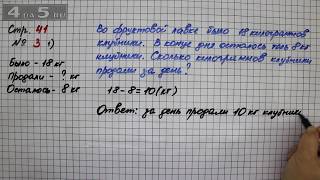 4 до 5
Стр. 41
№ 3 1)
Было - 18 кг
Продали - ? кг
Осталось - 8 кг
Во фруктовой лавке было 18 килограммов
клубники. В конце дня осталось лишь 8 кг
клубники. Сколько килограммов клубники
продали за день?
18 - 8 = 10 (кг)
Ответ: за день продали 10 кг клубники